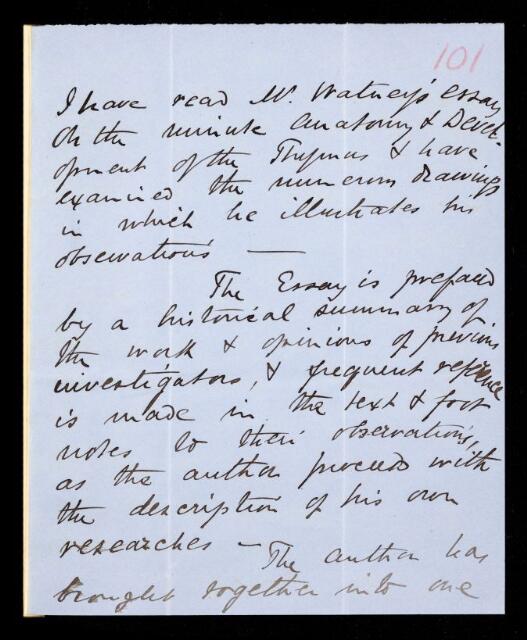 101
I have read Mr. Watney's essay
on the minute anatomy & Devel-
opment of the Thymus & have
examined the numerous drawings
in which he illustrates his
observations —
The Essay is prefaced
by a historical summary of
the work & opinions of previous
investigators, & frequent reference
is made in the text & foot
notes to their observations,
as the author proceeds with
the description of his own
researches – The author has
brought together into one